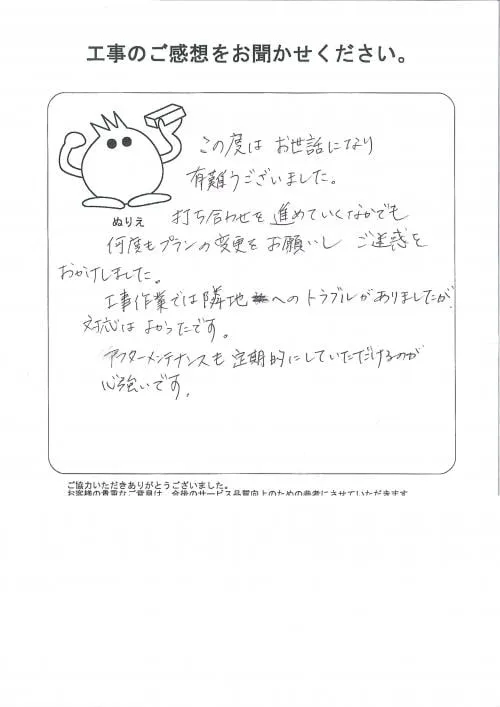 工事のご感想をお聞かせください。
この度は お世話になり
有難うございました。
ぬりえ
打ち合わせを進めていくなかでも
何度もプランの変更をお願いし ご迷惑を
おかけしました。
工事作業では隣地へのトラブルがありましたが、
対応はよかったです。
アフターメンテナンスも定期的にしていただけるのが
心強いです。
ご協力いただきありがとうございました。
お客様の貴重なご意見は、今後のサービス品質向上のための参考にさせていただきます